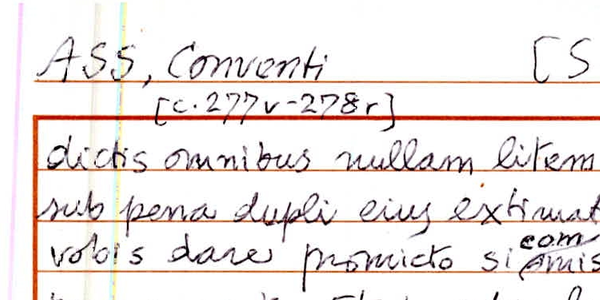 ASS, Conventi [S
[c. 277v-278r]
dictis omnibus nullam litem
sub pena dupli eius extimat
com
vobis dare promicto si omis